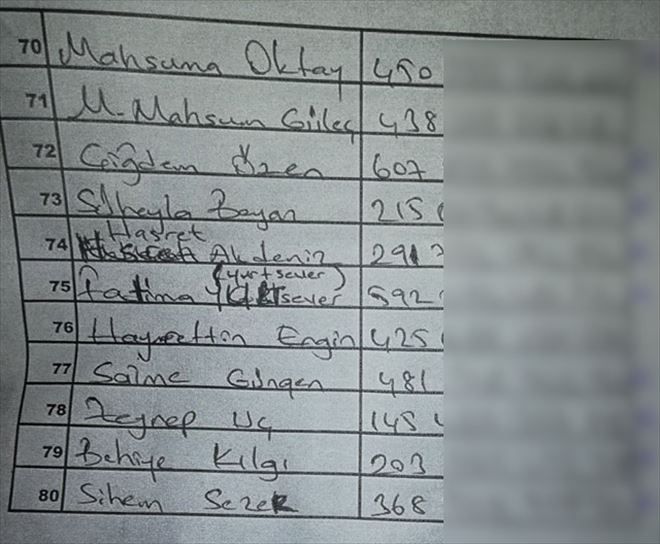 70 Mahsuna Oktay 450
71 M. Mahsum Güleç 438
72 Çiğdem Özen 607
73 Süheyla Bayan 215
74 Hasret Akdeniz 291
75 Fatima (yurtsever) 592
76 Hayrettin Engin 425
77 Saime Güngen 481
78 Zeynep Uç 145
79 Behiye Kılgı 203
80 Sihem Sezek 368